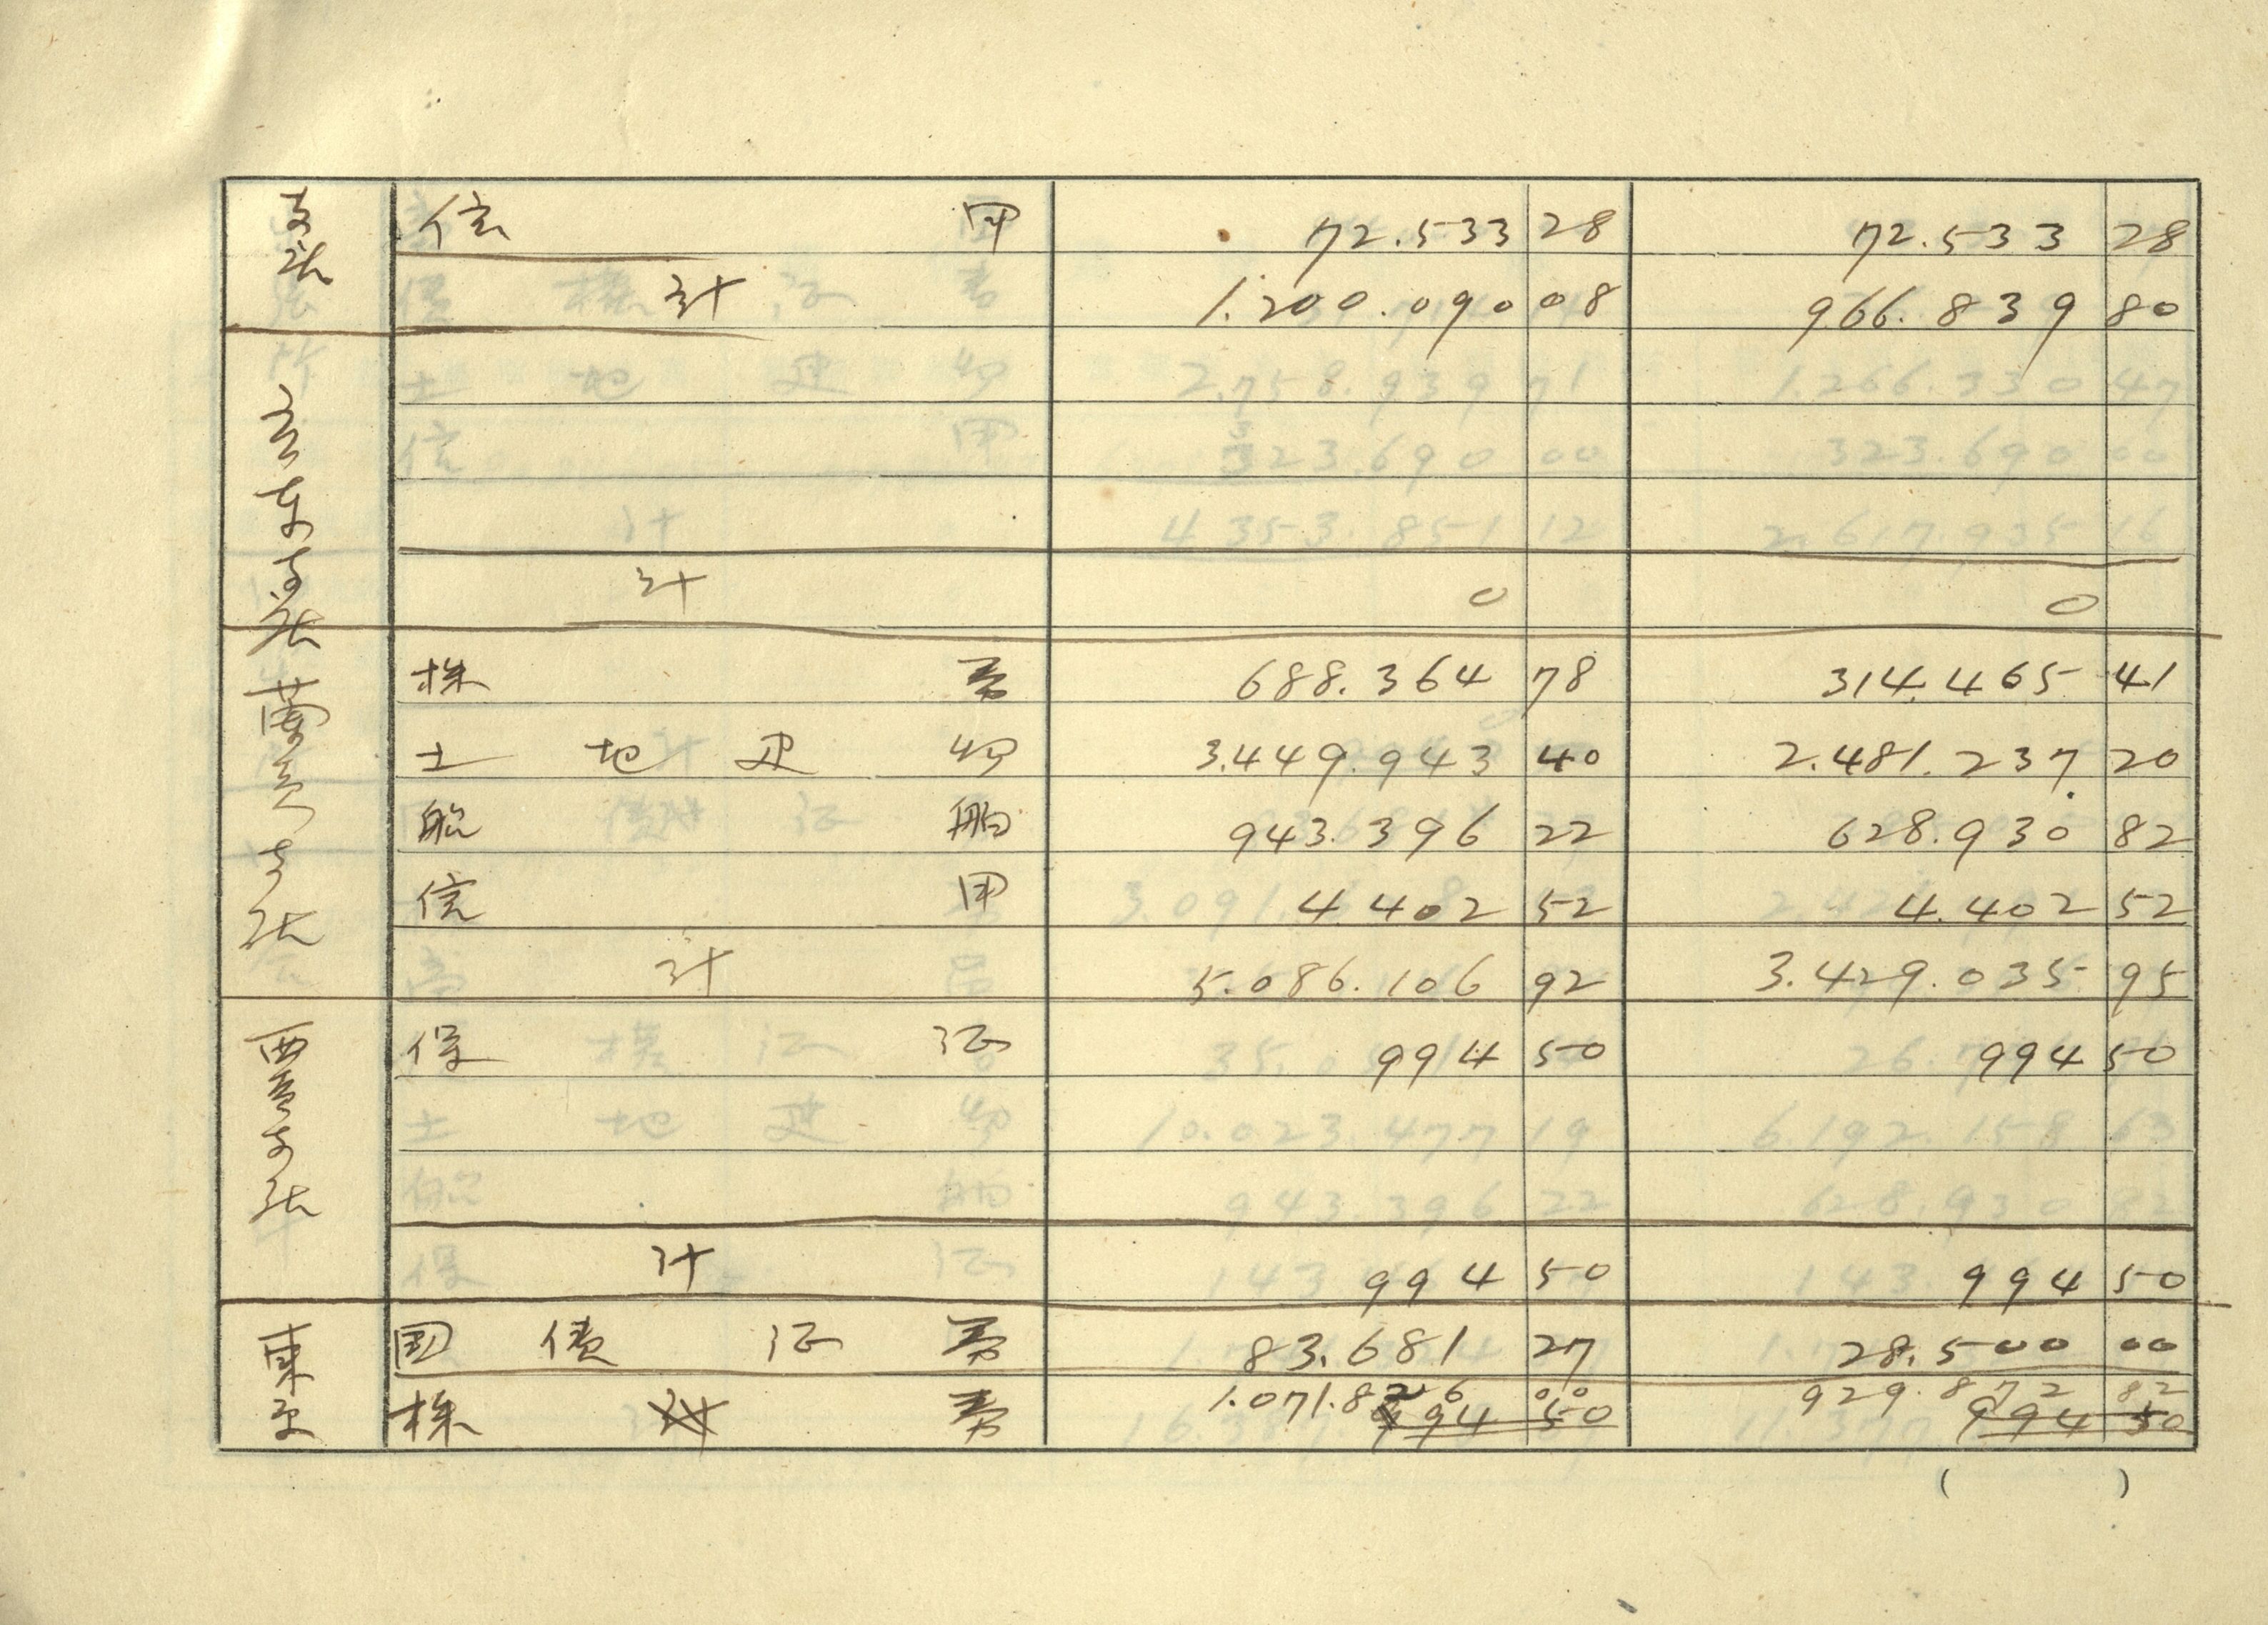 支社
信 用 72.533 28 72.533 28
計 1.200.090 08 966.839 80
支社
計 0 0
支社
株 券 688.364 78 314.465 41
土 地 建 物 3.449.943 40 2.481.237 20
船 舶 943.396 22 628.930 82
信 用 4.402 52 4.402 52
計 5.086.106 92 3.429.035 95
支社
保 証 994 50 994 50
計 994 50 994 50
東京
国 債 証 券 83.681 27 28.500 00
株 券 1.071.826 00 929.872 82
994 50 994 50
( )